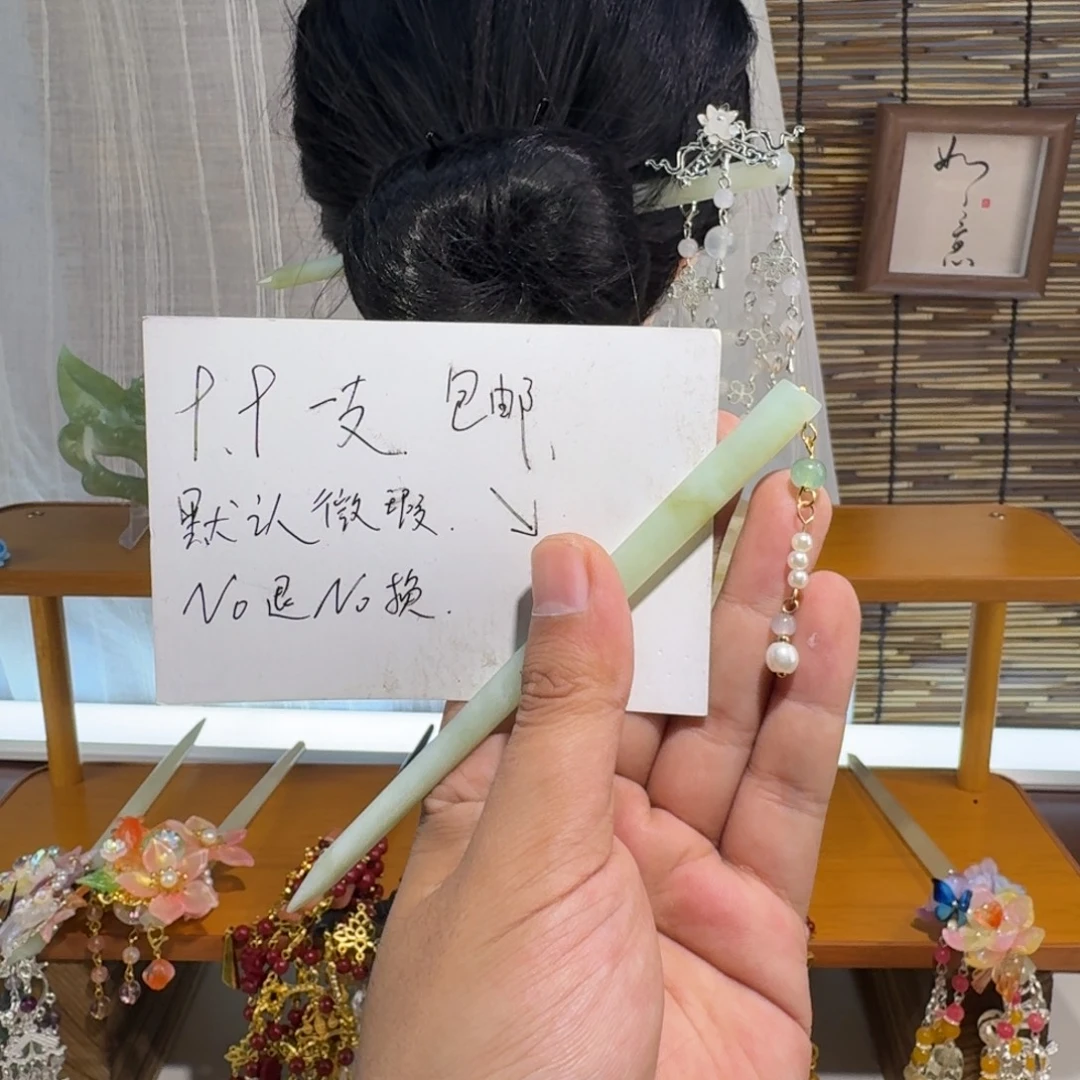 9.9 一支 包邮.
默认微瑕.
No退No换.
如意